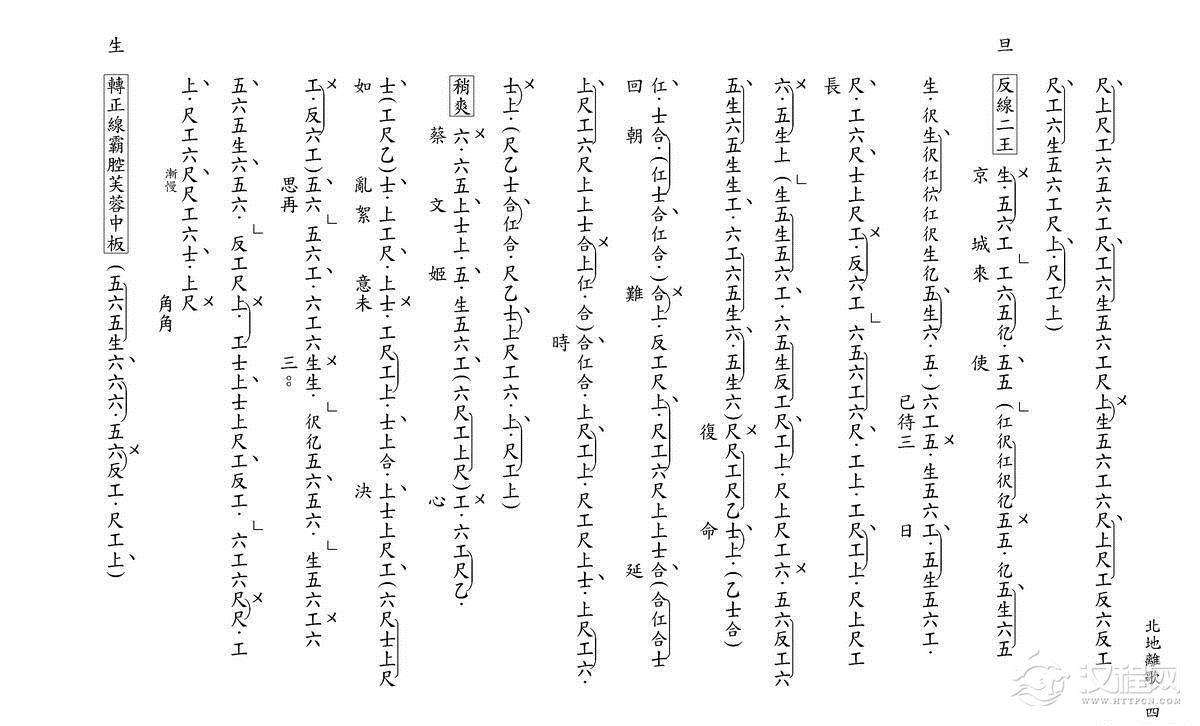 尺上尺工六五六工尺工六生五六工尺上生五六工六尺上尺工反六反工
尺工六生五六工尺上·尺工上)
旦 反線二王 生·五六工 工六五亿·五五(仜伬仜伬亿五五·亿五生六五
京 城來 使
生·伬生伬仜𠆾仜伬生亿五生六·五·)六工五·生五六工·五生五六工·
已待三 日
尺·工六尺士上尺工·反六工 六五六工六尺·工上·工尺工上·尺上尺工
長
六·五生上(生五生五六工·六五生反工尺工上·尺上尺工六·五六反工六
五生六五生生工·六工六五生六·五生六)尺尺工尺乙士上·(乙士合)
復 命
仜·士合·(仜士合仜合·)合上·反工尺上·尺工六尺上上士合(合仜合士
回 朝 難 延
上尺工六尺上上士合上仜·合)合仜合·上尺工上·尺工尺上士·上尺工六·
時
士上·(尺乙士合仜合·尺乙士上尺工六·上·尺工上)
稍爽 六·六五上士上·五·生五六工(六尺工上尺)工·六工尺乙·
蔡 文 姬 心
士(工尺乙)士·上工尺·上士·工尺工上·士上合·上士上尺工(六尺士上尺
如 亂絮 意未 決
工·反六工)五六 五六工·六工六生生· 伬亿五六五六· 生五六工六
思再 三。。
五六五生六五六· 反工尺上·工士上士上尺工反工· 六工六尺尺·工
上·尺工六尺尺工六士·上尺
漸慢 角角
生 轉正線霸腔芙蓉中板 (五六五生六六六·五六反工·尺工上)
北地離歌 四
汉程网
WWW.HTTPCN.COM